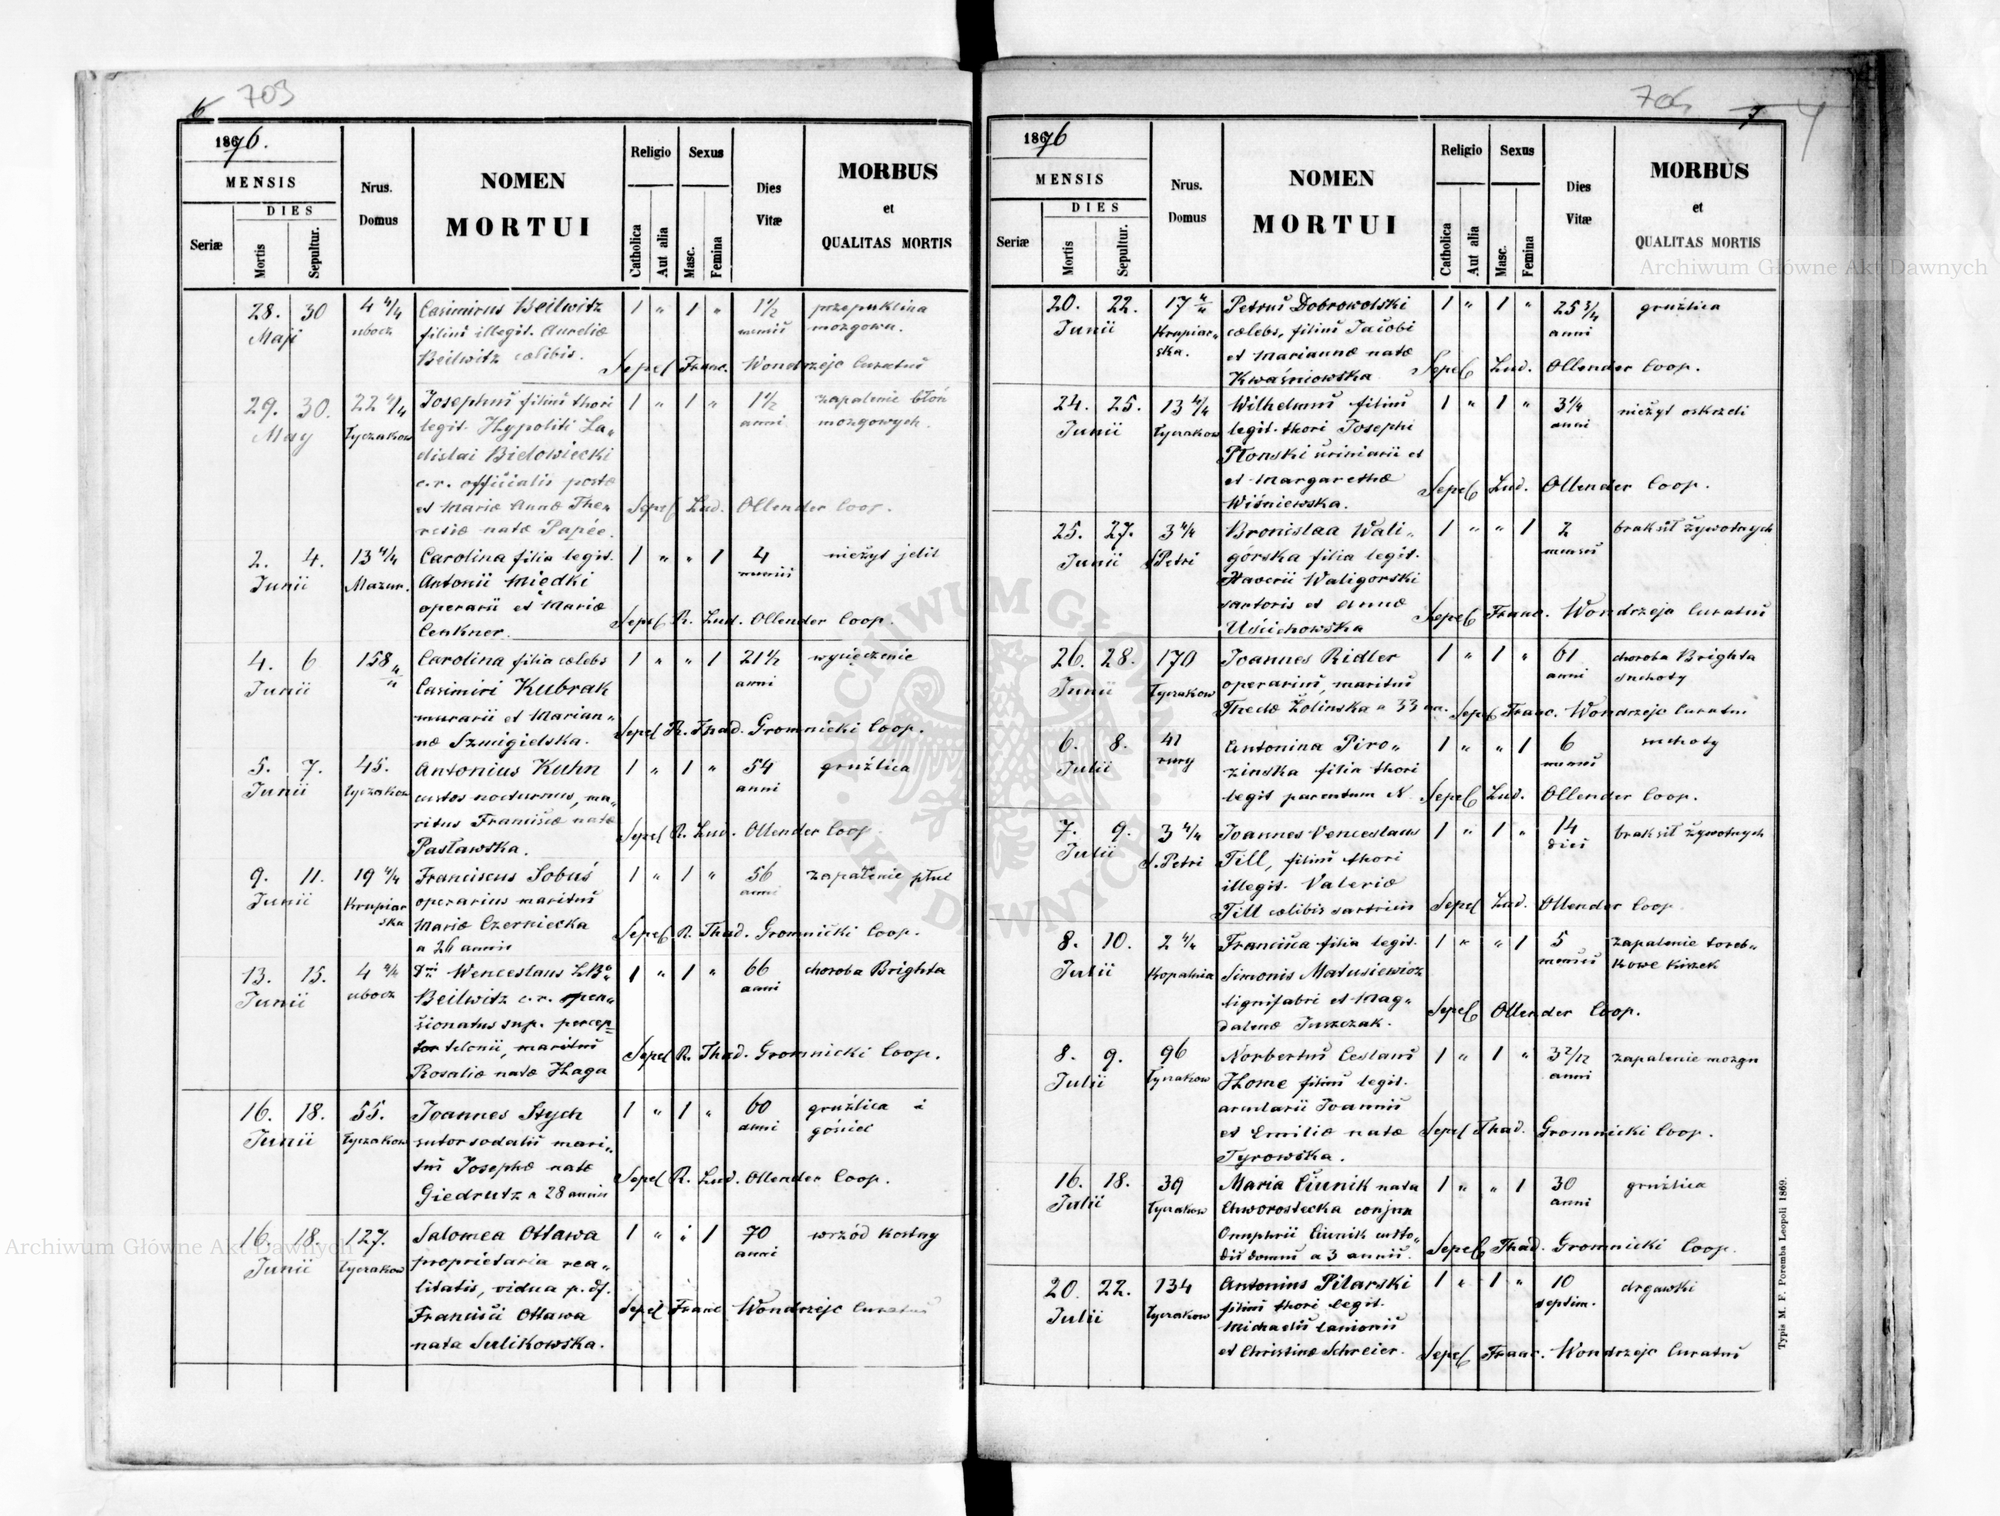 703
6
1876.
MENSIS
DIES
Seriæ
Mortis
Sepultur.
Nrus.
Domus
NOMEN
MORTUI
Religio
Catholica
Aut alia
Sexus
Masc.
Femina
Dies
Vitæ
MORBUS
et
QUALITAS MORTIS
28. 30 4 4/4 Casimirus Beilwitz 1 " 1 " 1½ przepuklina
Maji ubocz filius illegit. Aureliæ mensis mozgowa.
Beilwitz cælibis.
Sepel Franc. Wondrzejc Curatus
29. 30. 22 4/4 Josephus filius thori 1 " 1 " 1½ zapalenie błón
May Łyczakow legit. Hypoliti La= anni mozgowych.
dislai Bielowiecki
c. r. officialis postæ
et Mariæ Annæ The= Sepel Lud. Ollender Coop.
resiæ natæ Papée.
2. 4. 13 4/4 Carolina filia legit. 1 " " 1 4 nieżyt jelit
Junii Mazur. Antonii Miedki mensis
operarii et Mariæ Sepel R. Lud. Ollender Coop.
Cenkner.
4. 6 158 4/4 Carolina filia cælebs 1 " " 1 21½ wycięczenie
Junii Casimiri Kubrak anni
murarii et Marian=
næ Szmigielska. Sepel R. Thad. Gromnicki Coop.
5. 7. 45. Antonius Kuhn 1 " 1 " 54 gruźlica
Junii Łyczakow custos nocturnus, ma= anni
ritus Franciscæ natæ
Pasławska. Sepel R. Lud. Ollender Coop.
9. 11. 19 4/4 Franciscus Sobuś 1 " 1 " 56 zapalenie płuc
Junii Krupiar operarius maritus anni
ska Mariæ Czerniecka Sepel R. Thad. Gromnicki Coop.
a 26 annis
13. 15. 4 4/4 Wenceslaus 1 " 1 " 66 choroba Brighta
Junii ubocz Beilwitz c. r. pen= anni
sionatus sup. percep=
tor telonii, maritus Sepel R. Thad. Gromnicki Coop.
Rosaliæ natæ Haga
16. 18. 55. Joannes Stych 1 " 1 " 60 gruźlica i
Junii Łyczakow sutor sodalis mari= anni gościec
tus Josephæ natæ
Giedrutz a 28 annis Sepel R. Lud. Ollender Coop.
16. 18. 127. Salomea Ottawa 1 " " 1 70 wrzód kostny
Junii Łyczakow proprietaria rea= anni
litatis, vidua p. df.
Francisci Ottawa Sepel Franc Wondrzejc Curatus
nata Sulikowska.
704
7
1876
MENSIS
DIES
Seriæ
Mortis
Sepultur.
Nrus.
Domus
NOMEN
MORTUI
Religio
Catholica
Aut alia
Sexus
Masc.
Femina
Dies
Vitæ
MORBUS
et
QUALITAS MORTIS
20. 22. 17 4/4 Petrus Dobrowolski 1 " 1 " 25 3/4 gruźlica
Junii Krupiar= cælebs, filius Jacobi anni
ska. et Mariannæ natæ Sepel Lud. Ollender Coop.
Kwaśniowska
24. 25. 13 4/4 Wilhelmus filius 1 " 1 " 3¼ nieżyt oskrzeli
Junii Łyczakow legit. thori Josephi anni
Płonski
et Margarethæ Sepel Lud. Ollender Coop.
Wiśniewska.
25. 27. 3 4/4 Bronislaa Wali= 1 " " 1 2 brak sił żywotnych
Junii S. Petri górska filia legit. menses
Xaverii Waligorski
sartoris et Annæ Sepel Franc. Wondrzejc Curatus
Uścichowska
26. 28. 170 Joannes Ridler 1 " 1 " 61 choroba Brighta
Junii Łyczakow operarius, maritus anni suchoty
Theclæ Żolinska a 33 an. Sepel Franc. Wondrzejc Curatus
6. 8. 41 Antonina Piro= 1 " " 1 6 suchoty
Julii rury zinska filia thori menses
legit parentum N Sepel Lud. Ollender Coop.
7. 9. 3 4/4 Joannes Venceslaus 1 " 1 " 14 brak sił żywotnych
Julii S. Petri Till, filius thori dies
illegit. Valeriæ
Till cælibis sartricis Sepel Lud. Ollender Coop
8. 10. 2 4/4 Francisca filia legit. 1 " " 1 5 zapalenie toreb=
Julii Kopalnia Simonis Matusiewicz menses kowe kiszek
lignifabri et Mag=
dalenæ Juszczak. Sepel Ollender Coop.
8. 9. 96 Norbertus Ceslaus 1 " 1 " 3 2/12 zapalenie mozgu
Julii Łyczakow Home filius legit. anni
armularii Joannis
et Emiliæ natæ Sepel Thad. Gromnicki Coop.
Tyrowska.
16. 18. 39 Maria Ciunik nata 1 " " 1 30 gruźlica
Julii Łyczakow Chworostecka conjux anni
Onuphrii Ciunik custo=
dis domus a 3 annis. Sepel Thad. Gromnicki Coop.
20 22. 134 Antonius Pilarski 1 " 1 " 10 drgawski
Julii Łyczakow filius thori legit. septim.
Michaelis lanionis
et Christinæ Schreier. Sepel Franc. Wondrzejc Curatus
Typis M. F. Poremba Leopoli 1869.
Archiwum Główne Akt Dawnych
Archiwum Główne Akt Dawnych
ARCHIWUM GŁÓWNE AKT DAWNYCH